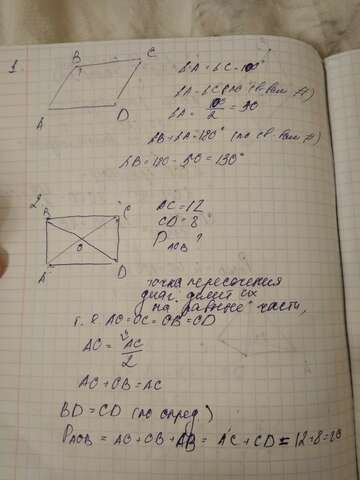 1.
B
C
A
D
∠A = ∠C = 100°
∠A = ∠C (по св. вам #)
∠A = 100/2 = 50
∠B + ∠A = 180° (по св. вам #)
∠B = 180 - 50 = 130°
2.
B
C
O
A
D
AC = 12
CD = 8
P AOB ?
точка пересечения
диаг. делит их
на равные части,
т. е. AO = OC = OB = OD
AO = AC/2
AO + OB = AC
BD = CD (по опред.)
P AOB = AO + OB + AB = AC + CD = 12 + 8 = 20